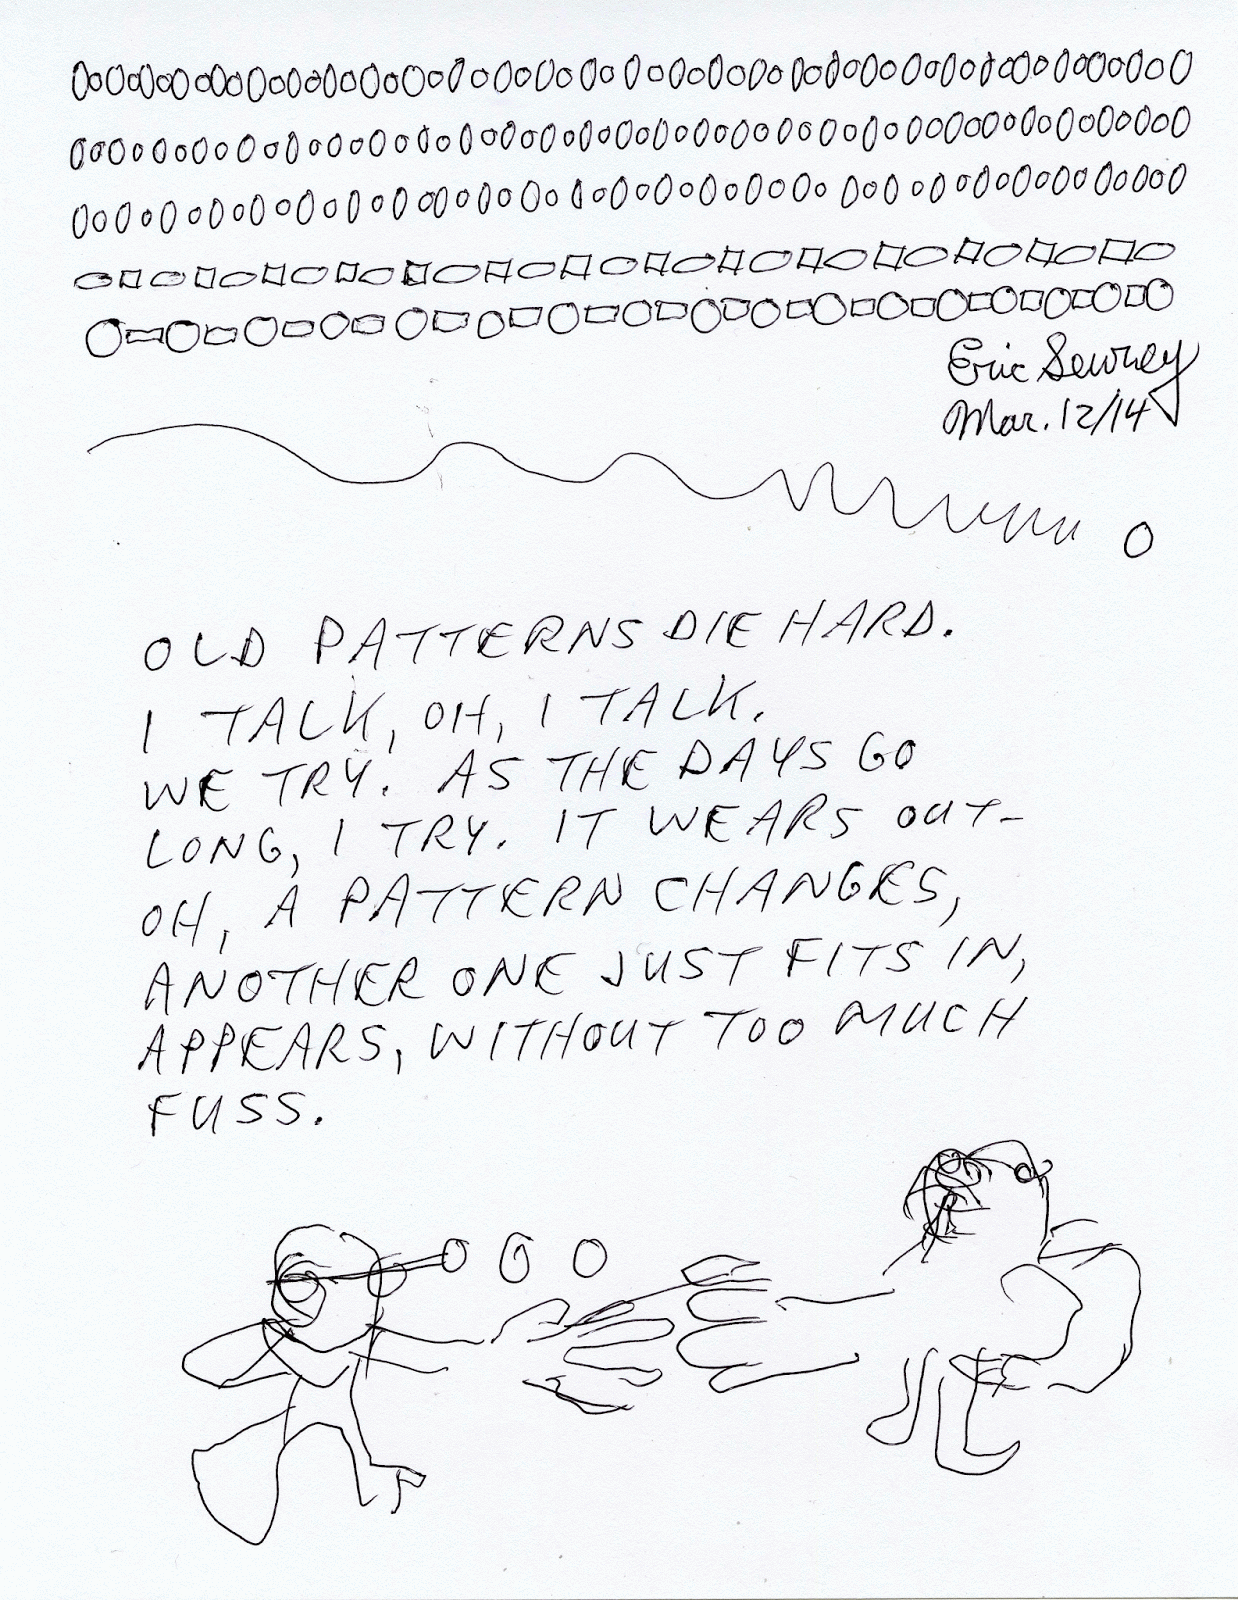 Eric Sewrey
Mar. 12/14
OLD PATTERNS DIE HARD.
I TALK, OH, I TALK.
WE TRY. AS THE DAYS GO
LONG, I TRY. IT WEARS OUT-
OH, A PATTERN CHANGES,
ANOTHER ONE JUST FITS IN,
APPEARS, WITHOUT TOO MUCH
FUSS.